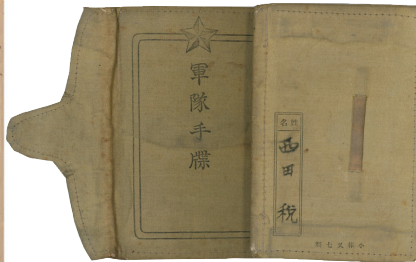 軍隊手牒
姓名
西田税